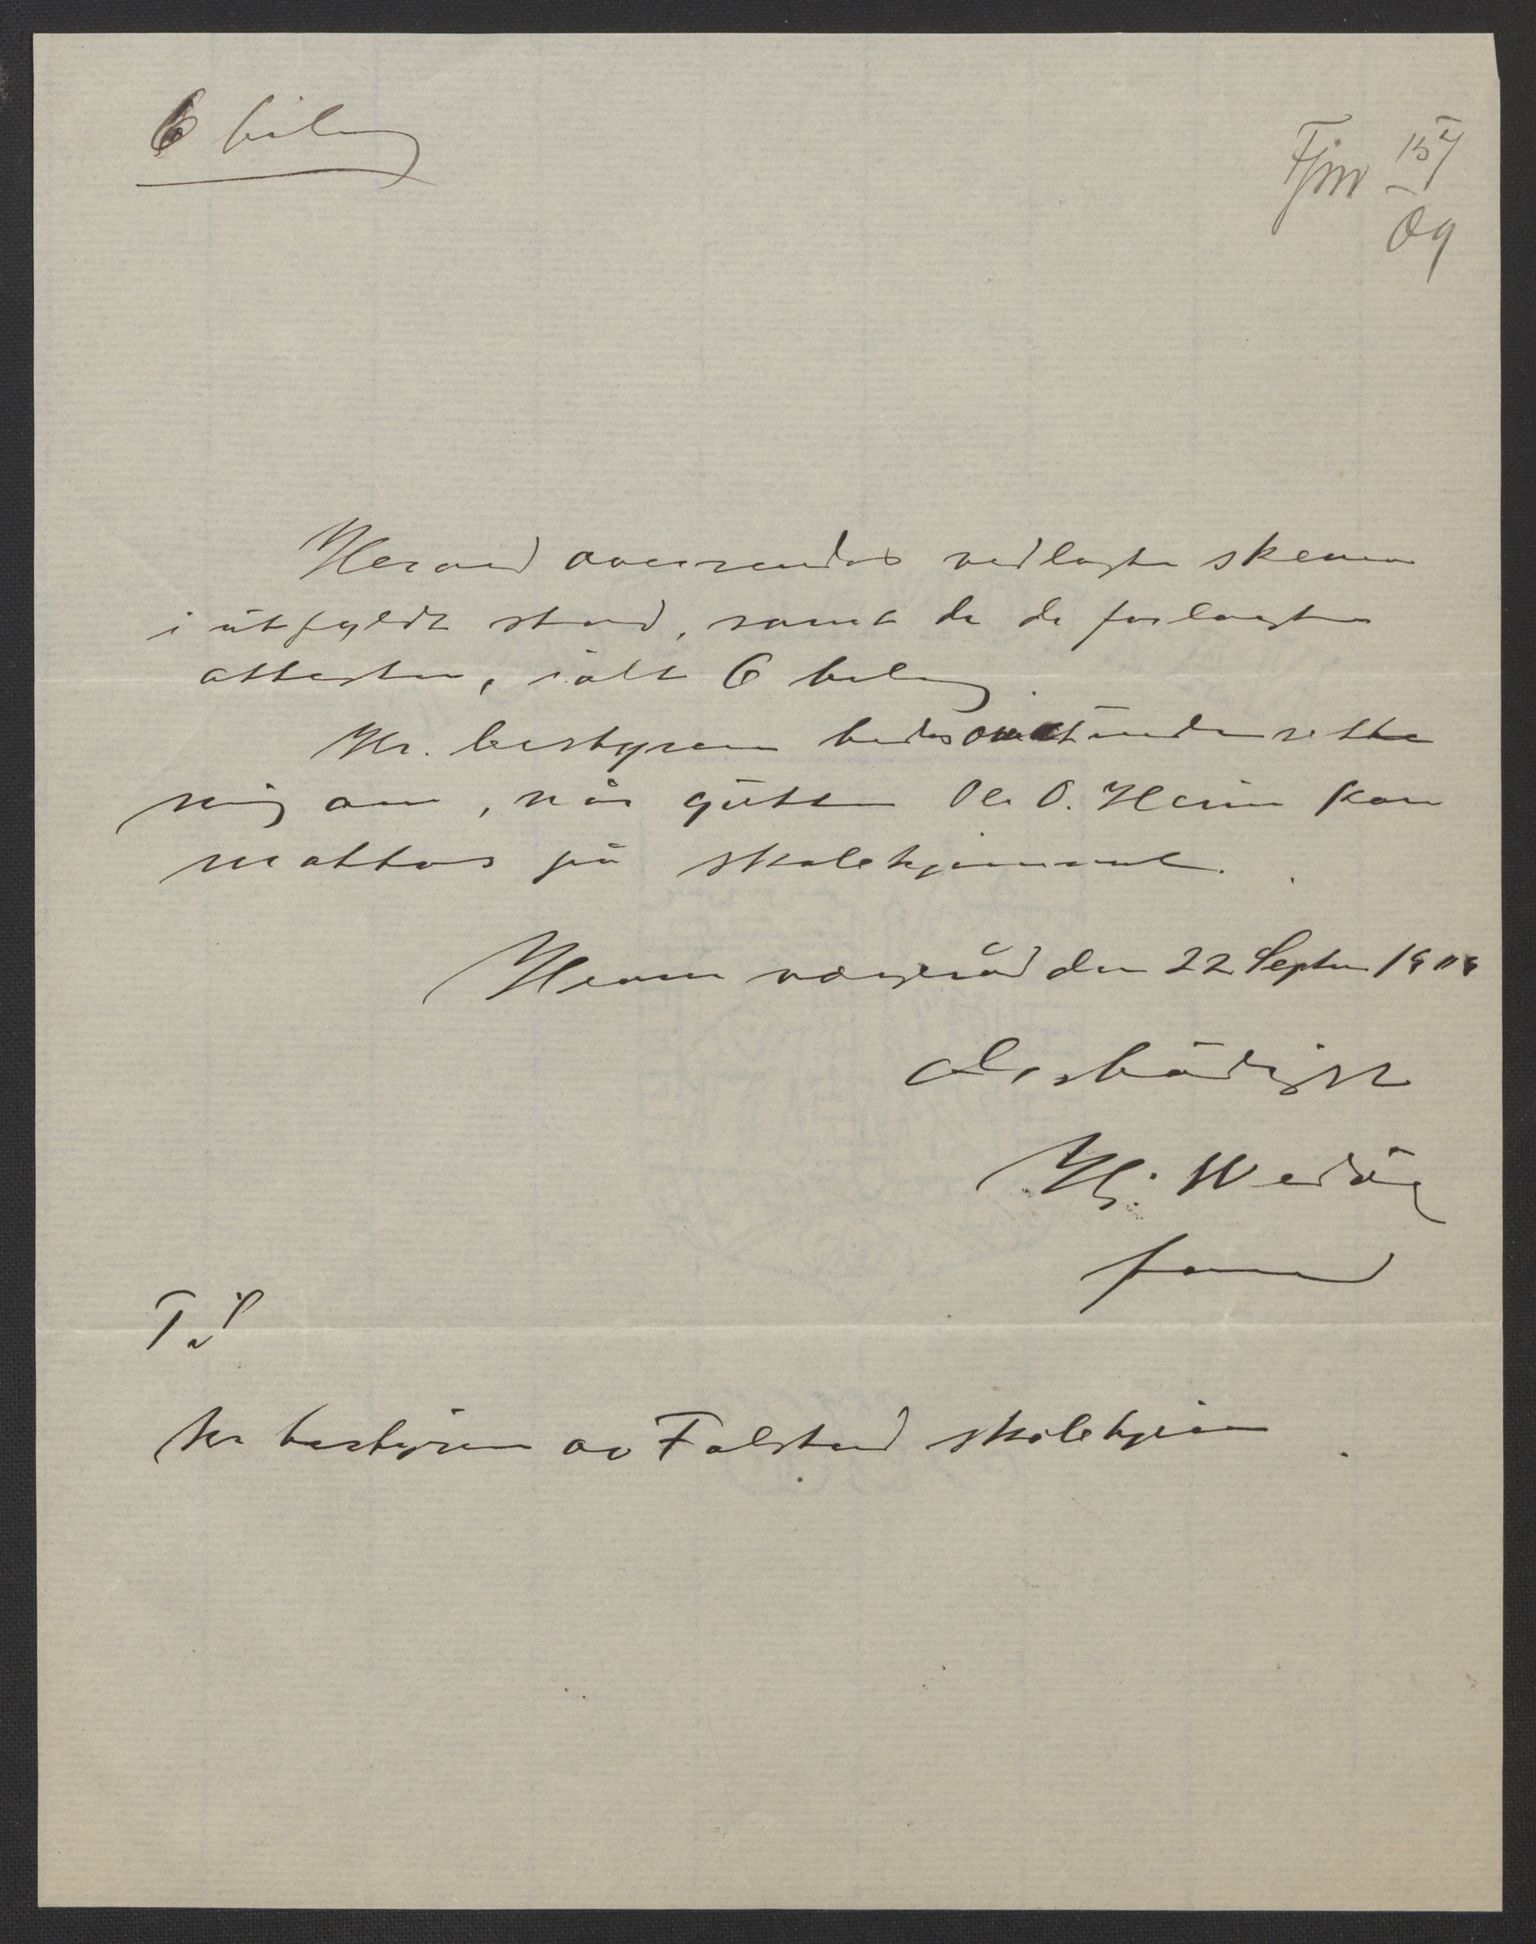 6 bilag
Fjm 157/09
Herved oversendes vedlagte skema
i utfyldt stand, samt de de forlangte
attester, ialt 6 bilag.
Hr. bestyreren bedes om at underrette
mig om, når gutten Ole O. Heim kan
mottas på skolehjemmet.
Hevne vergeråd den 22 Septbr 1909
Ærbødigst
Hj. Wedøe
formand
Til
hr bestyreren av Falstad skolehjem